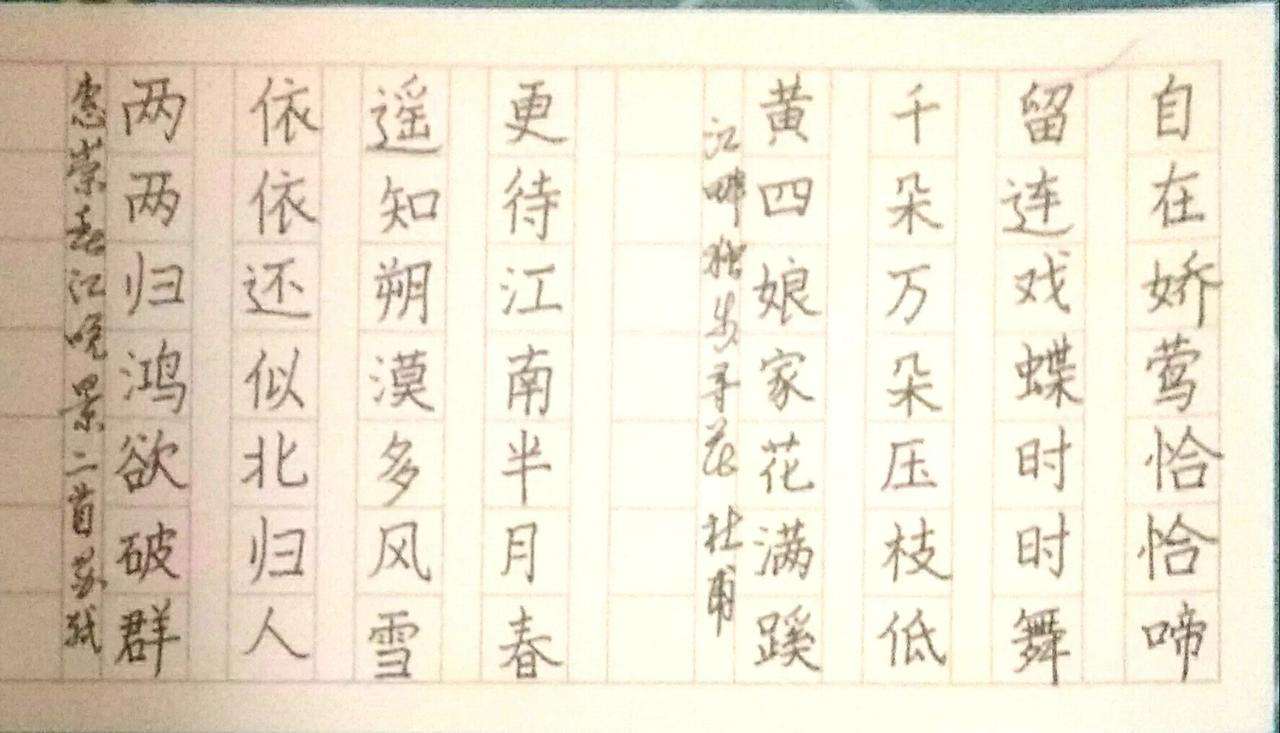 惠崇春江晚景二首苏轼
两两归鸿欲破群
依依还似北归人
遥知朔漠多风雪
更待江南半月春
江畔独步寻花 杜甫
黄四娘家花满蹊
千朵万朵压枝低
留连戏蝶时时舞
自在娇莺恰恰啼